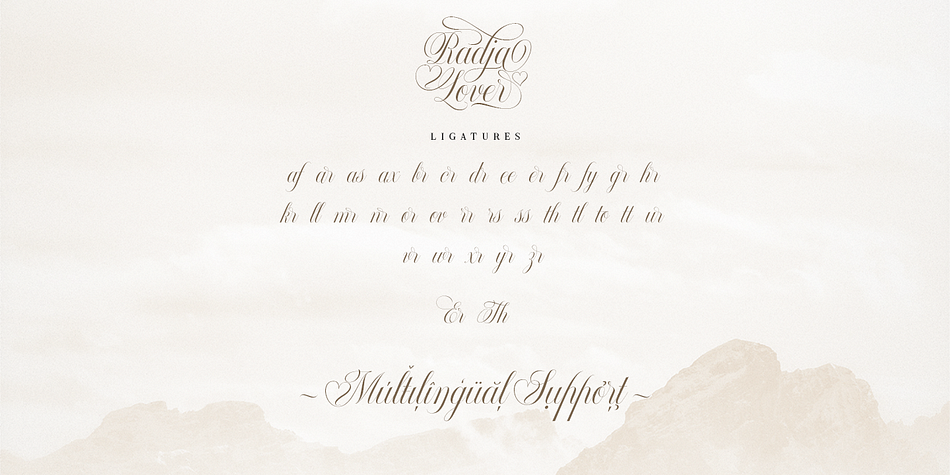 Radja
Lover
LIGATURES
af ar as ax br cr dr ee er fr fy gr hr
kr ll mr nr or ov rr rs ss th tl to tt ur
vr wr xr yr zr
Er Th
~ Múltıļîņgüăļ Șuppơŗţ ~